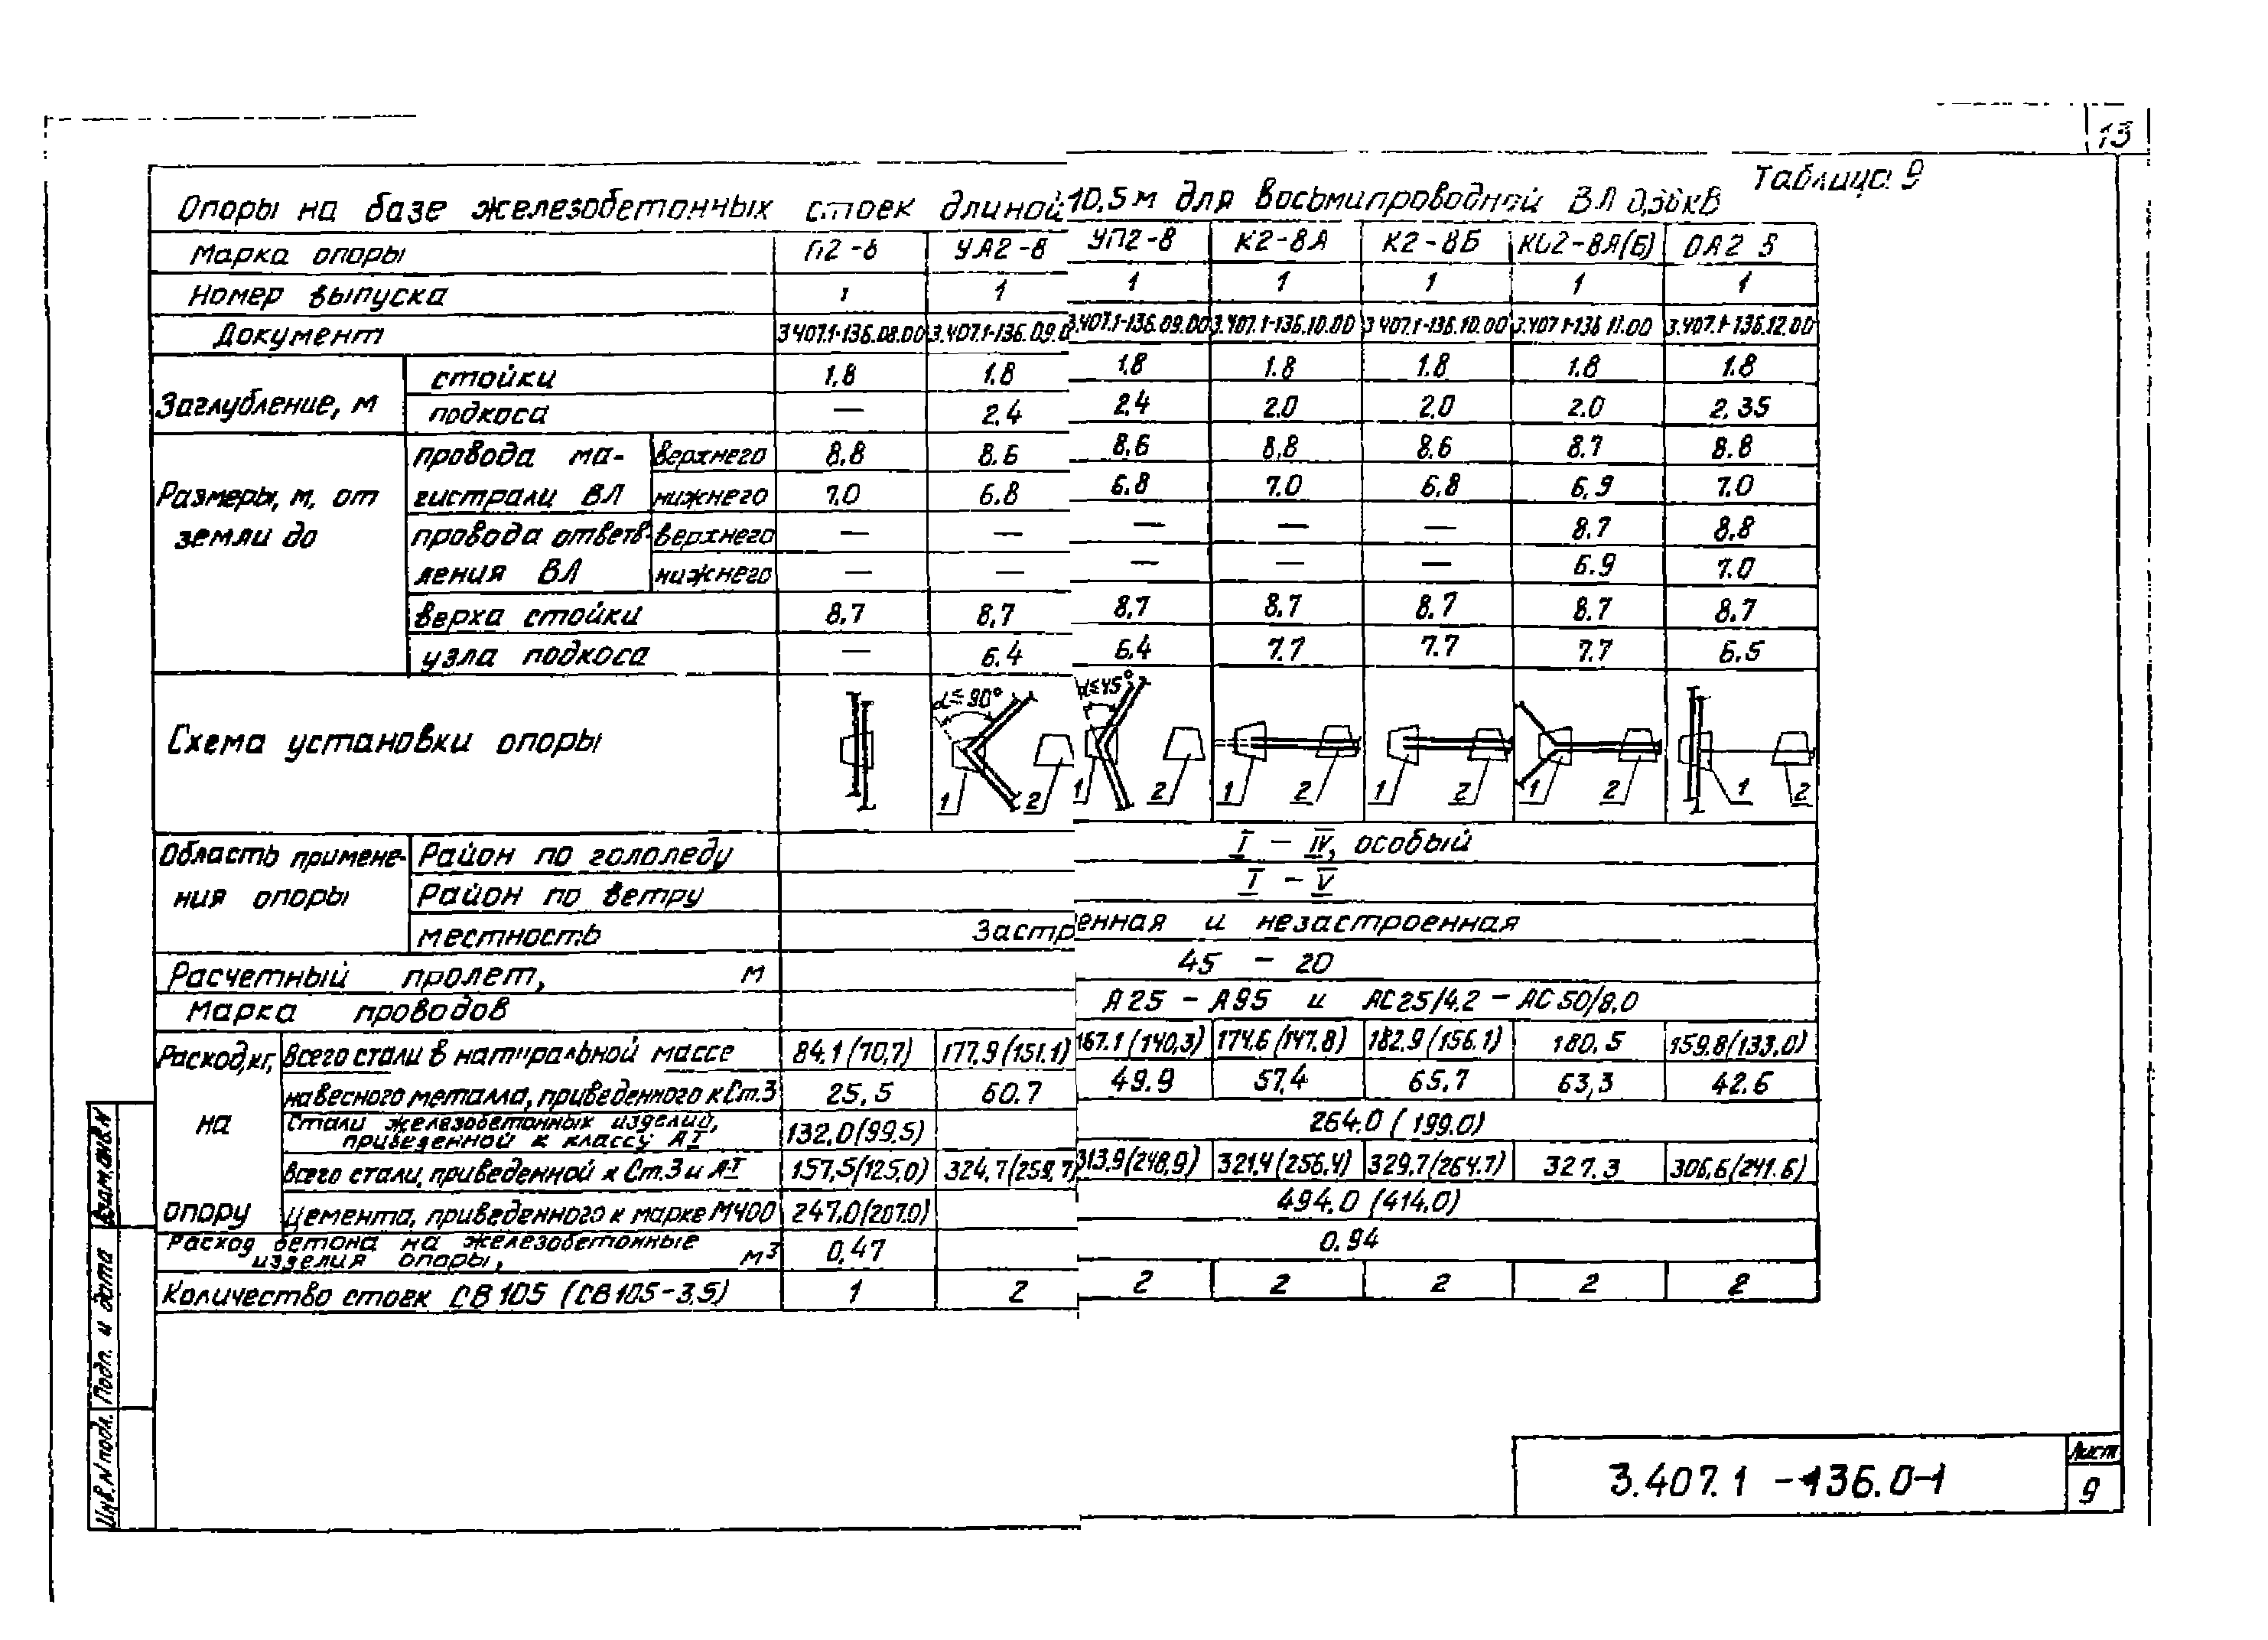 13
Таблица 9
Опоры на базе железобетонных стоек длиной 10,5 м для восьмипроводной ВЛ 0,38кВ
Марка опоры П2-8 УА2-8 УП2-8 К2-8А К2-8Б КО2-8А(Б) ОА2 8
Номер выпуска 1 1 1 1 1 1 1
Документ 3.407.1-136.08.00 3.407.1-136.09.0 3.407.1-136.09.00 3.407.1-136.10.00 3.407.1-136.10.00 3.407.1-136.11.00 3.407.1-136.12.00
Заглубление, м стойки 1,8 1.8 1.8 1.8 1.8 1.8 1.8
подкоса — 2.4 2.4 2.0 2.0 2.0 2.35
Размеры, м, от земли до провода магистрали ВЛ верхнего 8,8 8.6 8.6 8,8 8.6 8.7 8.8
нижнего 7.0 6.8 6.8 7.0 6.8 6.9 7.0
провода ответвления ВЛ верхнего — — — — — 8.7 8.8
нижнего — — — — — 6.9 7.0
верха стойки 8,7 8,7 8,7 8,7 8.7 8.7 8.7
узла подкоса — 6.4 6.4 7.7 7.7 7.7 6.5
Схема установки опоры
α≤90° α≤45°
1 2 1 2 1 2 1 2 1 2 1 2
Область применения опоры Район по гололеду I – IV, особый
Район по ветру I – V
местность Застренная и незастроенная
Расчетный пролет, м 45 – 20
Марка проводов А25 – А95 и АС25/4.2 – АС50/8.0
Расход, кг, на опору Всего стали в натуральной массе 84.1 (70,7) 177.9 (151.1) 167.1 (140,3) 174.6 (147.8) 182.9 (156.1) 180.5 159.8 (133,0)
навесного металла, приведенного к Ст.3 25,5 60.7 49.9 57,4 65.7 63,3 42.6
Стали железобетонных изделий, приведенной к классу АI 132.0(99.5) 264.0 (199.0)
Всего стали, приведенной к Ст.3 и АI 157,5(125,0) 324,7(259,7) 313.9(248,9) 321.4(256,4) 329.7(264.7) 327.3 306,6(241.6)
Цемента, приведенного к марке М400 247.0(207.0) 494.0 (414.0)
Расход бетона на железобетонные изделия опоры, м³ 0,47 0.94
Количество стоек СВ105 (СВ105-3,5) 1 2 2 2 2 2 2
Взам.инв.N
Подп. и дата
Инв.N подл.
3.407.1 -136.0-1
Лист
9